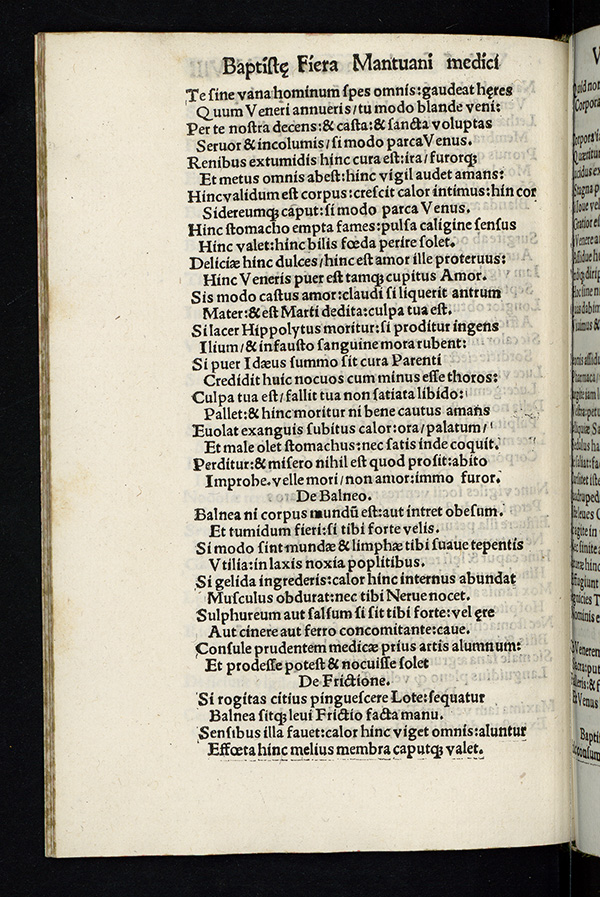 Baptiſtę Fiera Mantuani medici
Te ſine vana hominum ſpes omnis:gaudeat hęres
Quum Veneri annueris/tu modo blande veni:
Per te noſtra decens:& caſta:& ſancta voluptas
Seruor & incolumis/ſi modo parca Venus.
Renibus extumidis hinc cura eſt:ira/furorqꝫ
Et metus omnis abeſt:hinc vigil audet amans:
Hinc validum eſt corpus:creſcit calor intimus:hin cor
Sidereumqꝫ caput:ſi modo parca Venus.
Hinc ſtomacho empta fames:pulſa caligine ſenſus
Hinc valet:hinc bilis fœda perire ſolet.
Deliciæ hinc dulces/hinc eſt amor ille proteruus:
Hinc Veneris puer eſt tamqꝫ cupitus Amor.
Sis modo caſtus amor:claudi ſi liquerit antrum
Mater:& eſt Marti dedita:culpa tua eſt.
Si lacer Hippolytus moritur:ſi proditur ingens
Ilium/& infauſto ſanguine mora rubent:
Si puer Idæus ſummo ſit cura Parenti
Credidit huic nocuos cum minus eſſe thoros:
Culpa tua eſt/fallit tua non ſatiata libido:
Pallet:& hinc moritur ni bene cautus amans
Euolat exanguis ſubitus calor:ora/palatum/
Et male olet ſtomachus:nec ſatis inde coquit.
Perditur:& miſero nihil eſt quod proſit:abito
Improbe.velle mori/non amor:immo furor.
De Balneo.
Balnea ni corpus mundū eſt:aut intret obeſum.
Et tumidum fieri:ſi tibi forte velis.
Si modo ſint mundæ & limphæ tibi ſuaue tepentis
Vtilia:in laxis noxia poplitibus.
Si gelida ingrederis:calor hinc internus abundat
Muſculus obdurat:nec tibi Nerue nocet.
Sulphureum aut ſalſum ſi ſit tibi forte:vel ęre
Aut cinere aut ferro concomitante:caue.
Conſule prudentem medicæ prius artis alumnum:
Et prodeſſe poteſt & nocuiſſe ſolet
De Frictione.
Si rogitas citius pingueſcere Lote:ſequatur
Balnea ſitqꝫ leui Frictio facta manu.
Senſibus illa fauet:calor hinc viget omnis:aluntur
Effœta hinc melius membra caputqꝫ valet.